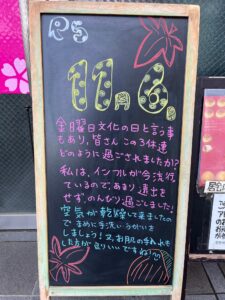 R5
11月6日
金曜日文化の日と言う事
もあり、皆さんこの3休連
どのように過ごされましたか!?
私は、インフルが今流行っ
ているので、あまり遠出を
せず、のんびり過ごしました!
空気が乾燥して来ましたの
でこまめに手洗い・うがいを
しましょう!又、お肌の手入れも
した方が良いですね!